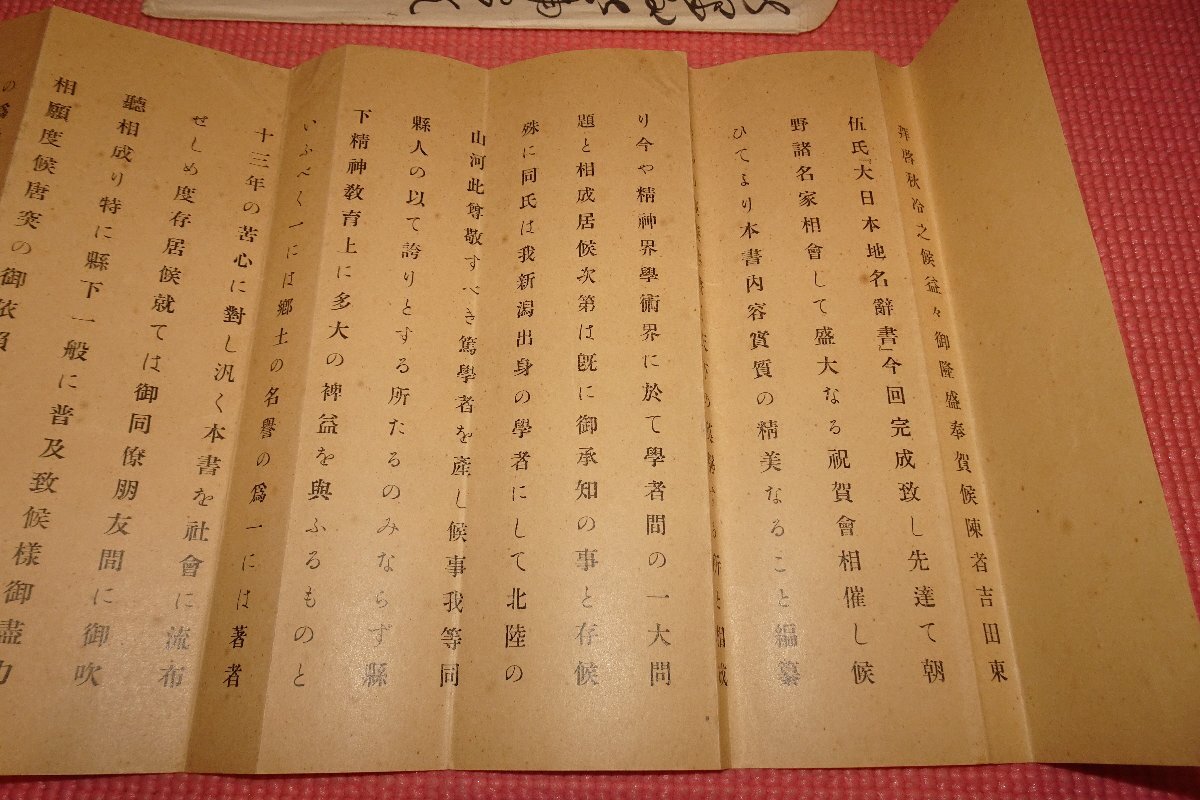 拜啓秋冷之候益々御隆盛奉賀候陳者吉田東
伍氏『大日本地名辭書』今回完成致し先達て朝
野諸名家相會して盛大なる祝賀會相催し候
ひてより本書内容實質の精美なること編纂
り今や精神界學術界に於て學者間の一大問
題と相成居候次第は既に御承知の事と存候
殊に同氏は我新潟出身の學者にして北陸の
山河此尊敬すべき篤學者を產し候事我等同
縣人の以て誇りとする所たるのみならず縣
下精神敎育上に多大の裨益を與ふるものと
いふべく一には鄕土の名譽の爲一には著者
十三年の苦心に對し汎く本書を社會に流布
せしめ度存居候就ては御同僚朋友間に御吹
聽相成り特に縣下一般に普及致候樣御盡力
相願度候唐突の御依賴
の爲